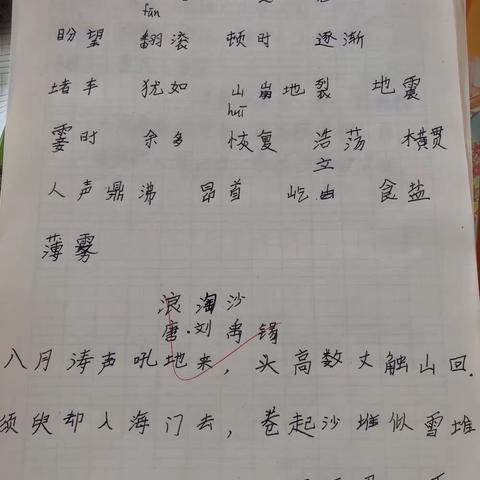 fān
盼望 翻滚 顿时 逐渐
堵车 犹如 山崩地裂 地震
huī
霎时 余多 恢复 浩荡 横贯
文
人声鼎沸 昂首 屹 食盐
薄雾
浪淘沙
唐·刘禹锡
八月涛声吼地来，头高数丈触山回.
须臾却入海门去，卷起沙堆似雪堆